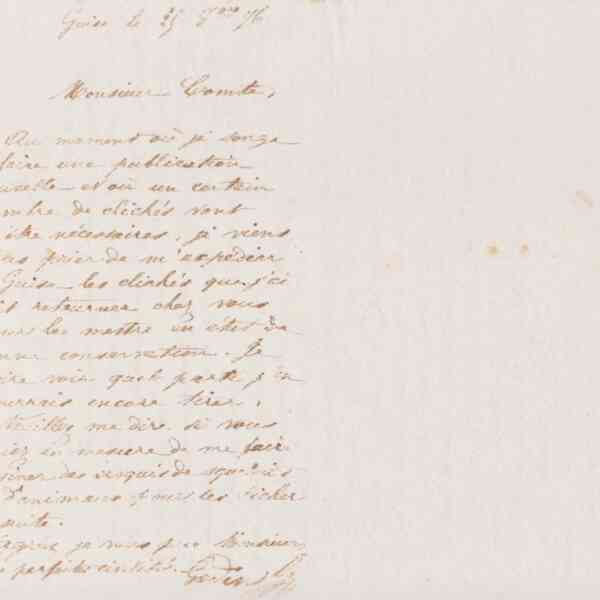 Guise le 25 7bre 76
Monsieur Comte,
Au moment où je songe
faire une publication
uvelle et où un certain
mbre de clichés vont
être nécessaires, je viens
us prier de m'expédier
Guise les clichés que j'ai
it retourner chez vous
our les mettre en état de
nne conservation. Je
ire voir quel parti j'en
ourrais encore tirer.
Veuillez me dire si vous
iez en mesure de me faire
siner des croquis de
d'animaux pour les
suite.
je vous prie Monsieur
parfaites civilités
Godin